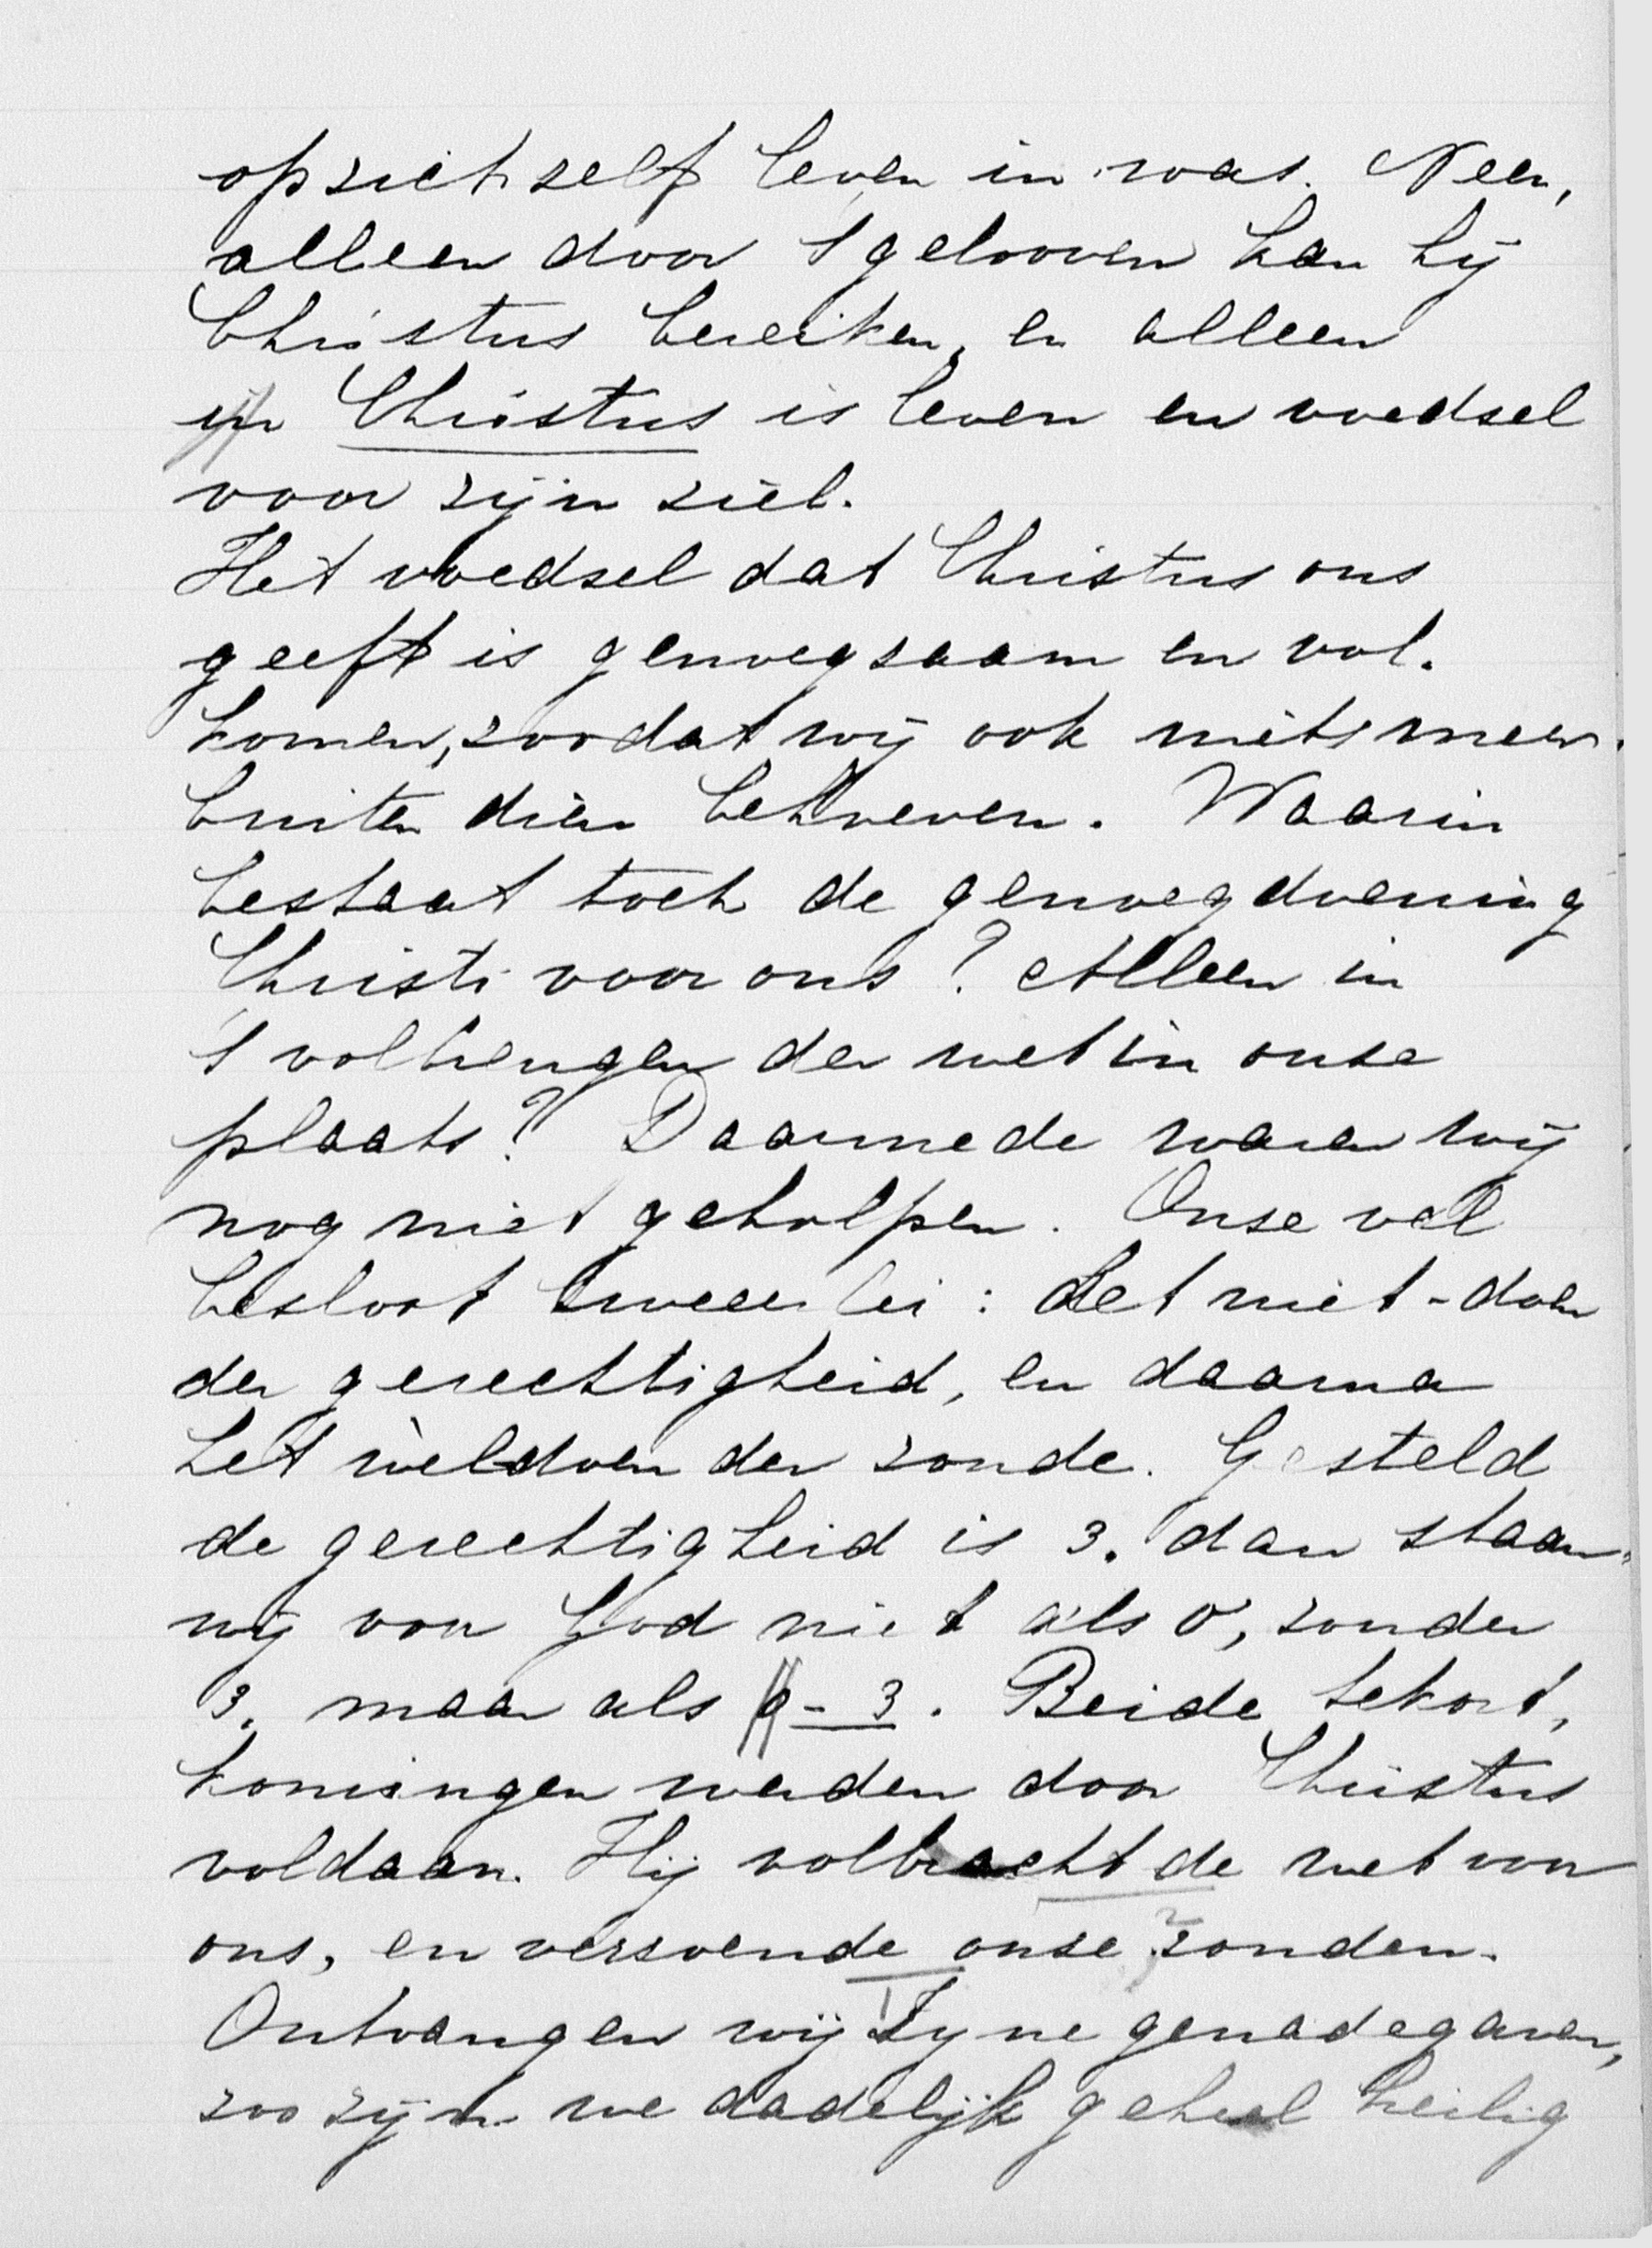 op zich zelf leven in was. Neen,
alleen door 't gelooven kan hij
Christus bereiken, en alleen
in Christus is leven en voedsel
voor zijn ziel.
Het voedsel dat Christus ons
geeft is genoegzaam en vol-
komen, zoodat wij ook niets meer
buiten dien behoeven. Waarin
bestaat toch de genoegdoening
Christi voor ons? Alleen in
't volbrengen der wet in onze
plaats? Daarmede waren wij
nog niet geholpen. Onze val
besloot tweeerlei: het niet-doen
der gerechtigheid, en daarna
het wèl doen der zonde. Gesteld
de gerechtigheid is 3. dan staan
wij voor God niet als 0, zonder
3. maar als 0-3. Beide tekort,
komingen werden door Christus
voldaan. Hij volbracht de wet voor
ons, en verzoende onze zonden.
Ontvangen wij Zyne genadegaven,
zoo zijn we dadelijk geheel heilig